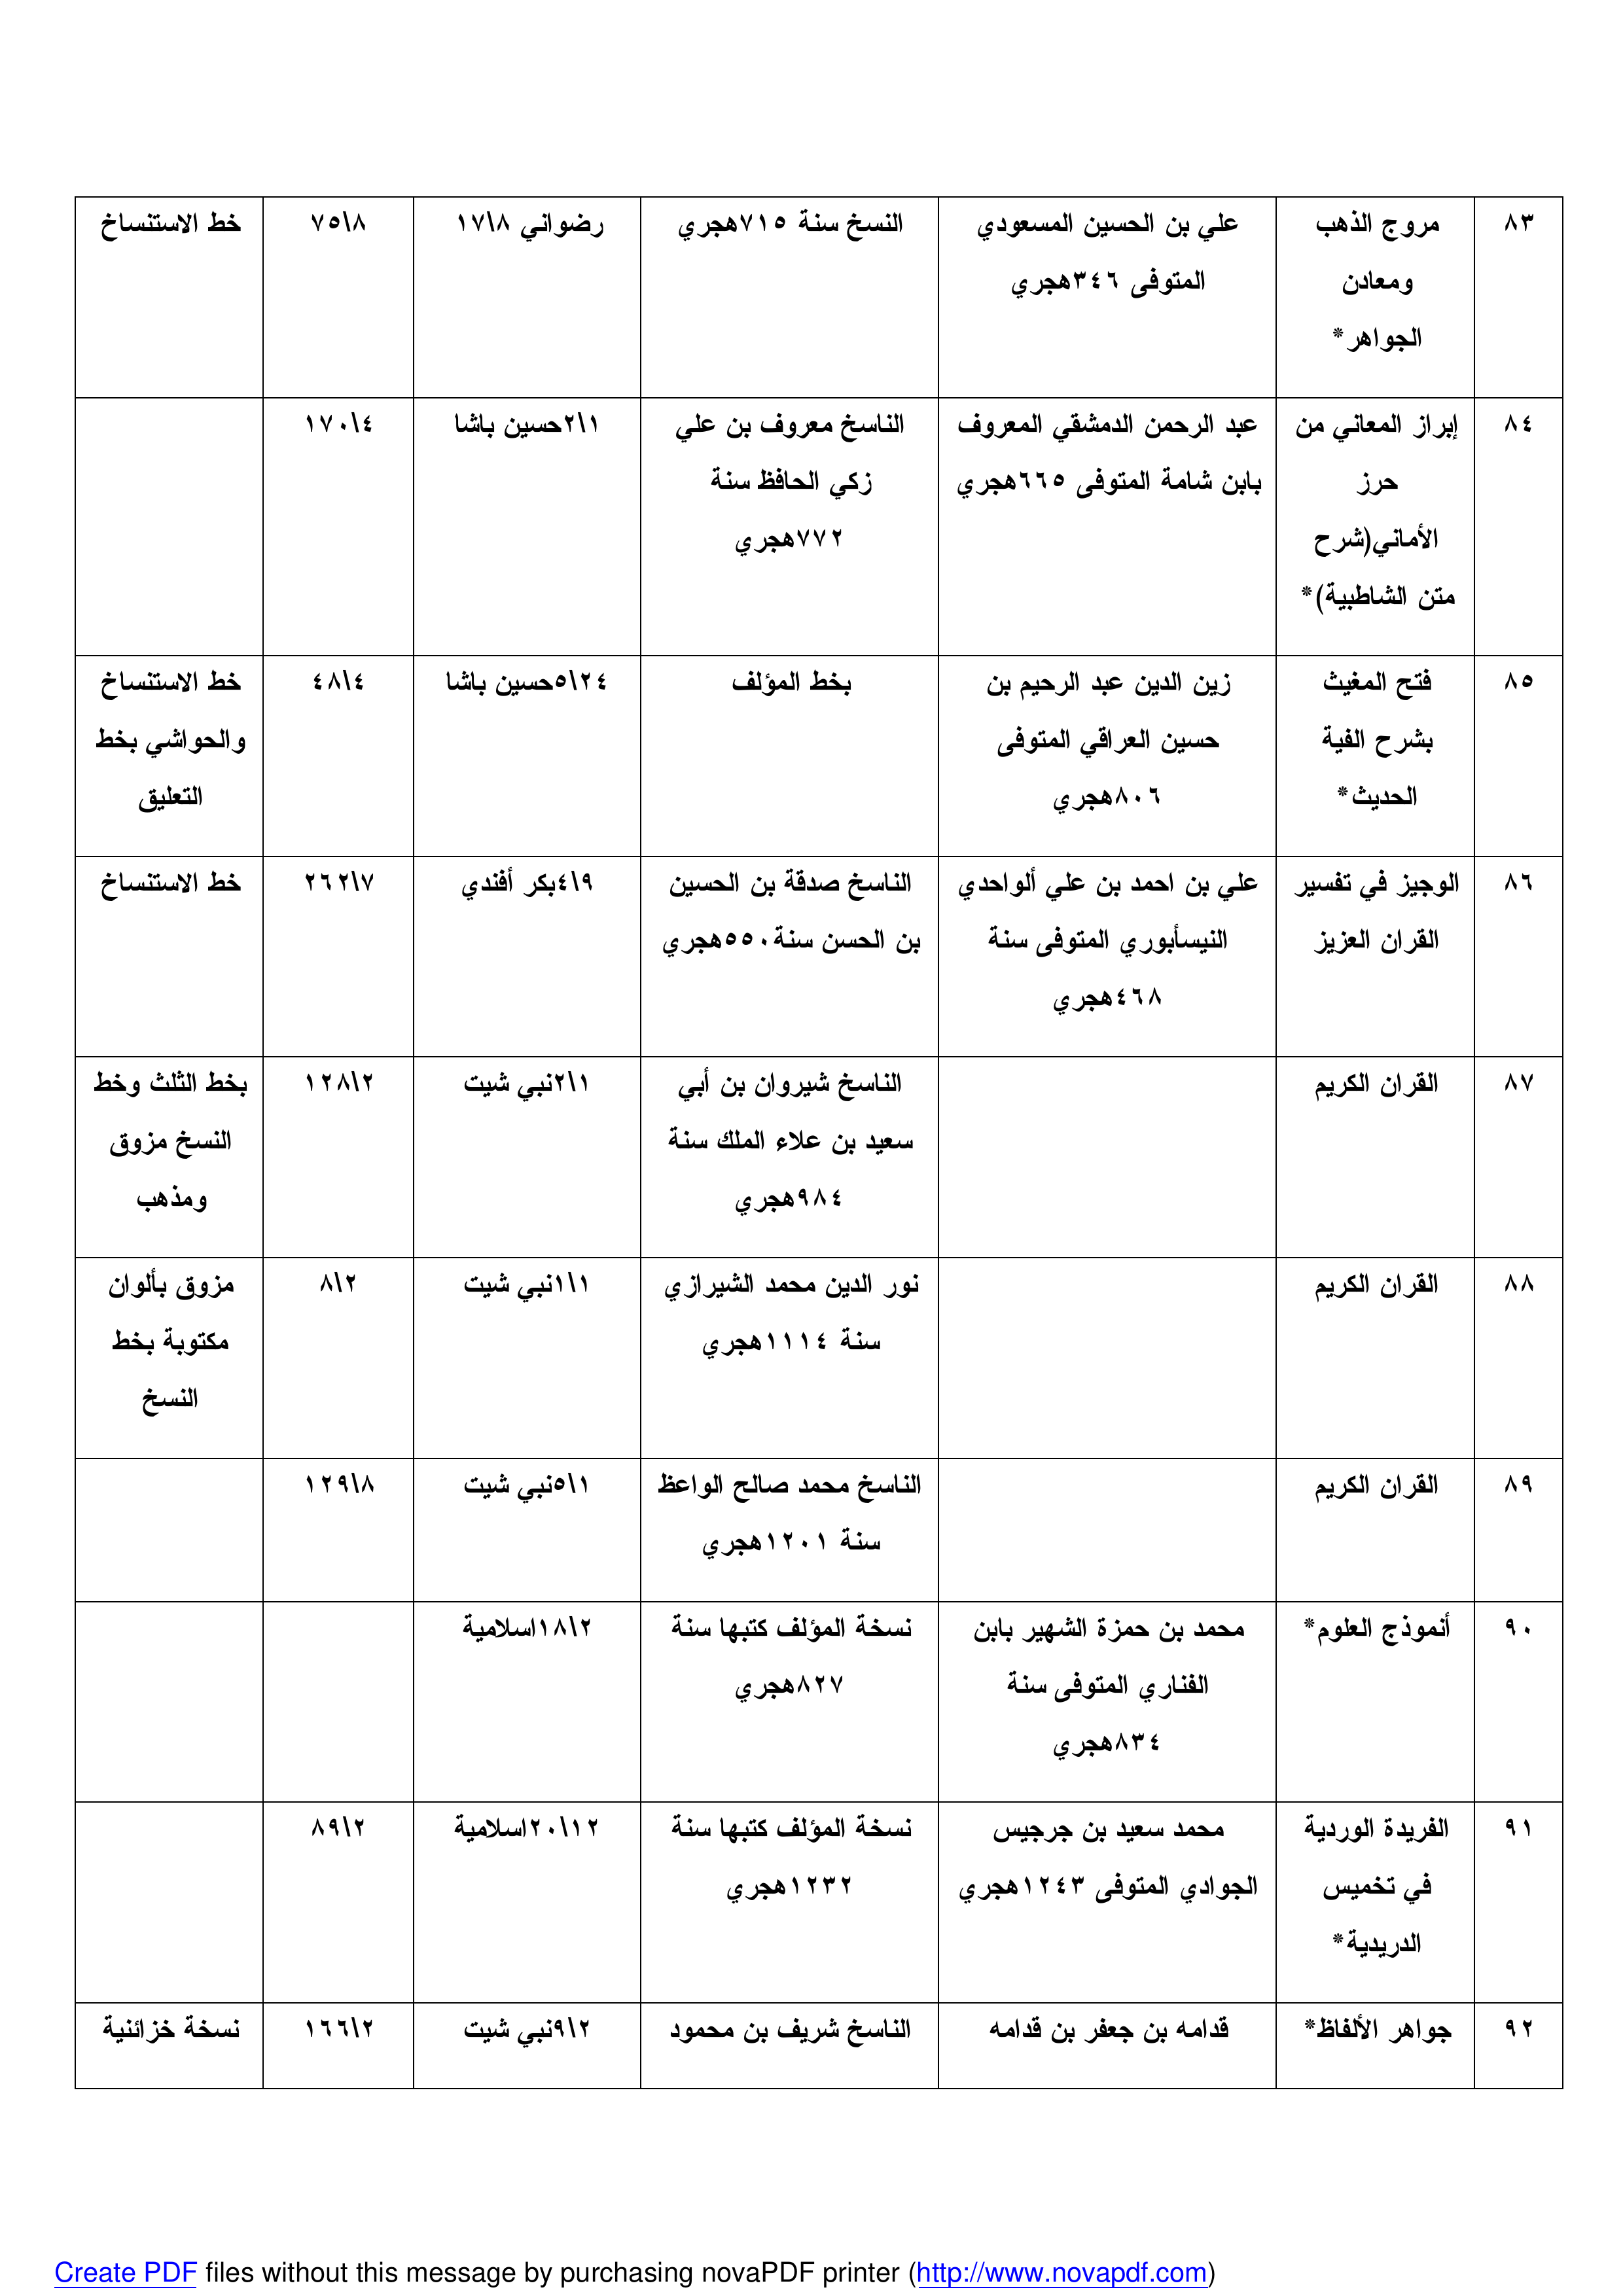 ٨٣
مروج الذهب
ومعادن
الجواهر*
علي بن الحسين المسعودي
المتوفى ٣٤٦هجري
النسخ سنة ٧١٥هجري
رضواني ١٧\٨
٧٥\٨
خط الاستنساخ
٨٤
إبراز المعاني من
حرز
الأماني(شرح
متن الشاطبية)*
عبد الرحمن الدمشقي المعروف
بابن شامة المتوفى ٦٦٥هجري
الناسخ معروف بن علي
زكي الحافظ سنة
٧٧٢هجري
٢\١حسين باشا
١٧٠\٤
٨٥
فتح المغيث
بشرح الفية
الحديث*
زين الدين عبد الرحيم بن
حسين العراقي المتوفى
٨٠٦هجري
بخط المؤلف
٥\٢٤حسين باشا
٤٨\٤
خط الاستنساخ
والحواشي بخط
التعليق
٨٦
الوجيز في تفسير
القران العزيز
علي بن احمد بن علي ألواحدي
النيسأبوري المتوفى سنة
٤٦٨هجري
الناسخ صدقة بن الحسين
بن الحسن سنة٥٥٠هجري
٤\٩بكر أفندي
٢٦٢\٧
خط الاستنساخ
٨٧
القران الكريم
الناسخ شيروان بن أبي
سعيد بن علاء الملك سنة
٩٨٤هجري
٢\١نبي شيت
١٢٨\٢
بخط الثلث وخط
النسخ مزوق
ومذهب
٨٨
القران الكريم
نور الدين محمد الشيرازي
سنة ١١١٤هجري
١\١نبي شيت
٨\٢
مزوق بألوان
مكتوبة بخط
النسخ
٨٩
القران الكريم
الناسخ محمد صالح الواعظ
سنة ١٢٠١هجري
٥\١نبي شيت
١٢٩\٨
٩٠
أنموذج العلوم*
محمد بن حمزة الشهير بابن
الفناري المتوفى سنة
٨٣٤هجري
نسخة المؤلف كتبها سنة
٨٢٧هجري
١٨\٢اسلامية
٩١
الفريدة الوردية
في تخميس
الدريدية*
محمد سعيد بن جرجيس
الجوادي المتوفى ١٢٤٣هجري
نسخة المؤلف كتبها سنة
١٢٣٢هجري
٢٠\١٢اسلامية
٨٩\٢
٩٢
جواهر الألفاظ*
قدامه بن جعفر بن قدامه
الناسخ شريف بن محمود
٩\٢نبي شيت
١٦٦\٢
نسخة خزائنية
Create PDF files without this message by purchasing novaPDF printer (http://www.novapdf.com)